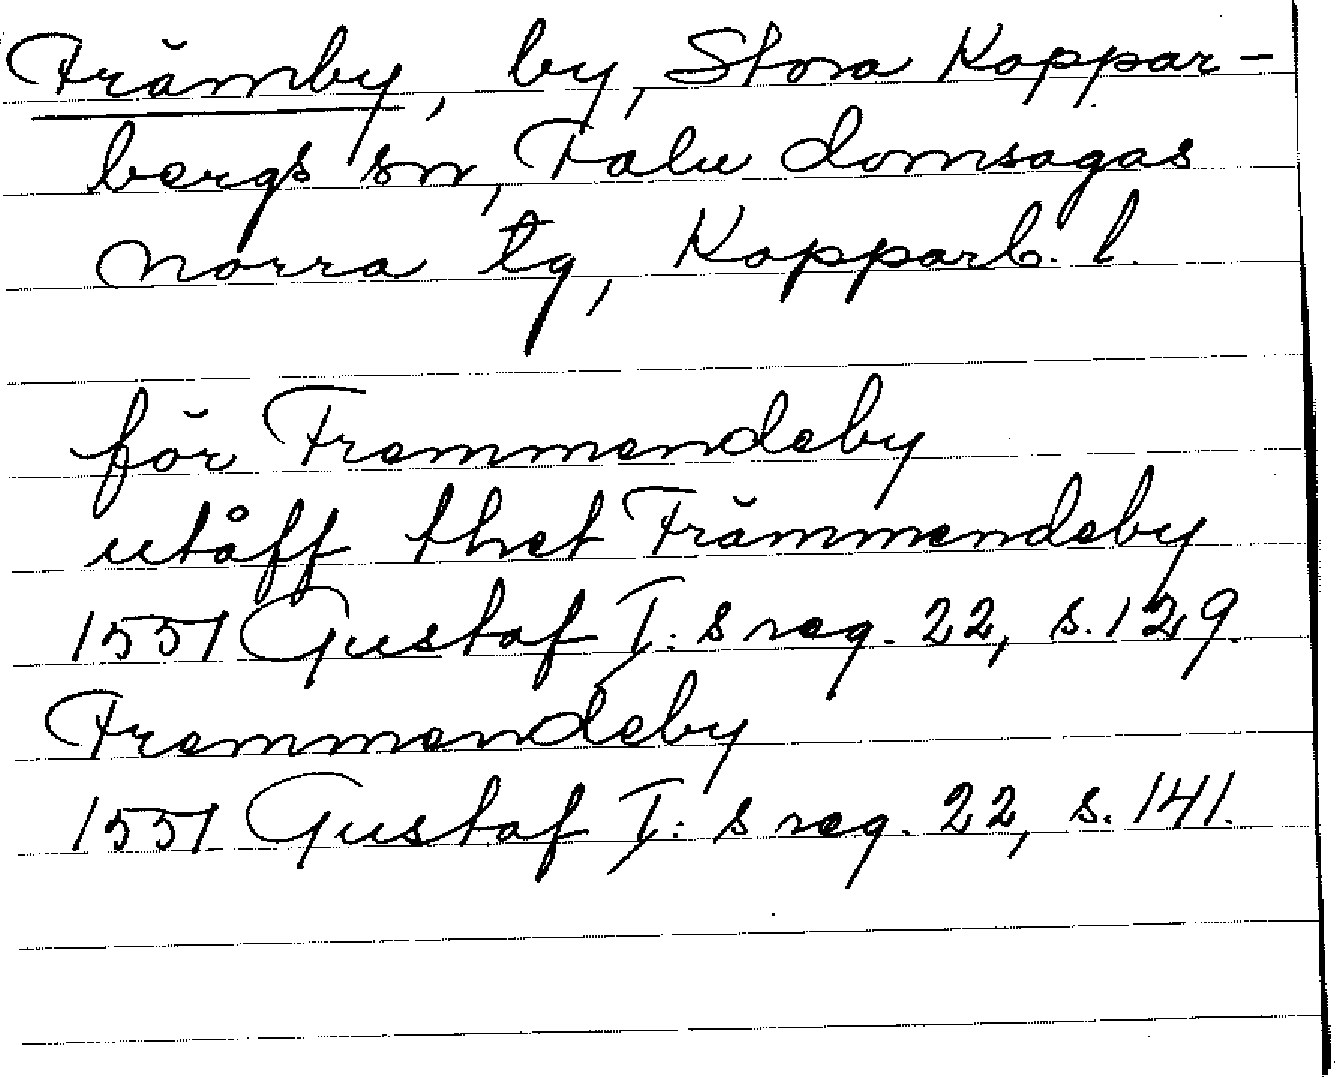 Främby, by, Stora Koppar-
bergs sn, Falu domsagas
norra tg, Kopparb. l.
för Fremmendeby
utåff thet Främmendeby
1551 Gustaf I:s reg. 22, s. 129.
Fremmendeby
1551 Gustaf I:s reg. 22, s. 141.